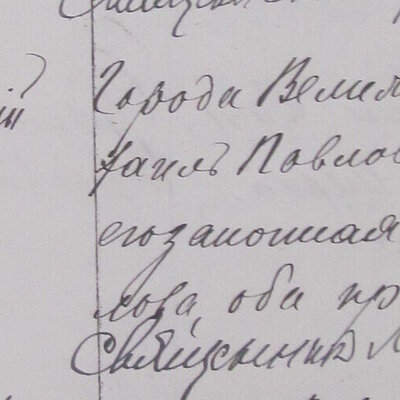 Города Велиж
хаилъ Павлов
его законная
лова, оба пр
Священник